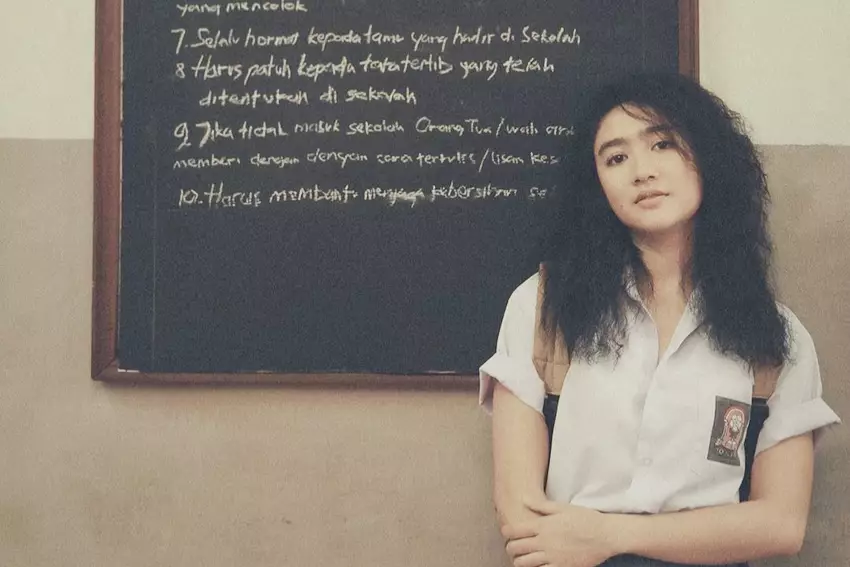 yang mencolok
7. Selalu hormat kepada tamu yang hadir di sekolah
8 Harus patuh kepada tata tertib yang telah
ditentukan di sekolah
9. Jika tidak masuk sekolah Orang Tua/wali
memberi dengan dengan cara tertulis/lisan
10. Harus membantu menjaga kebersihan